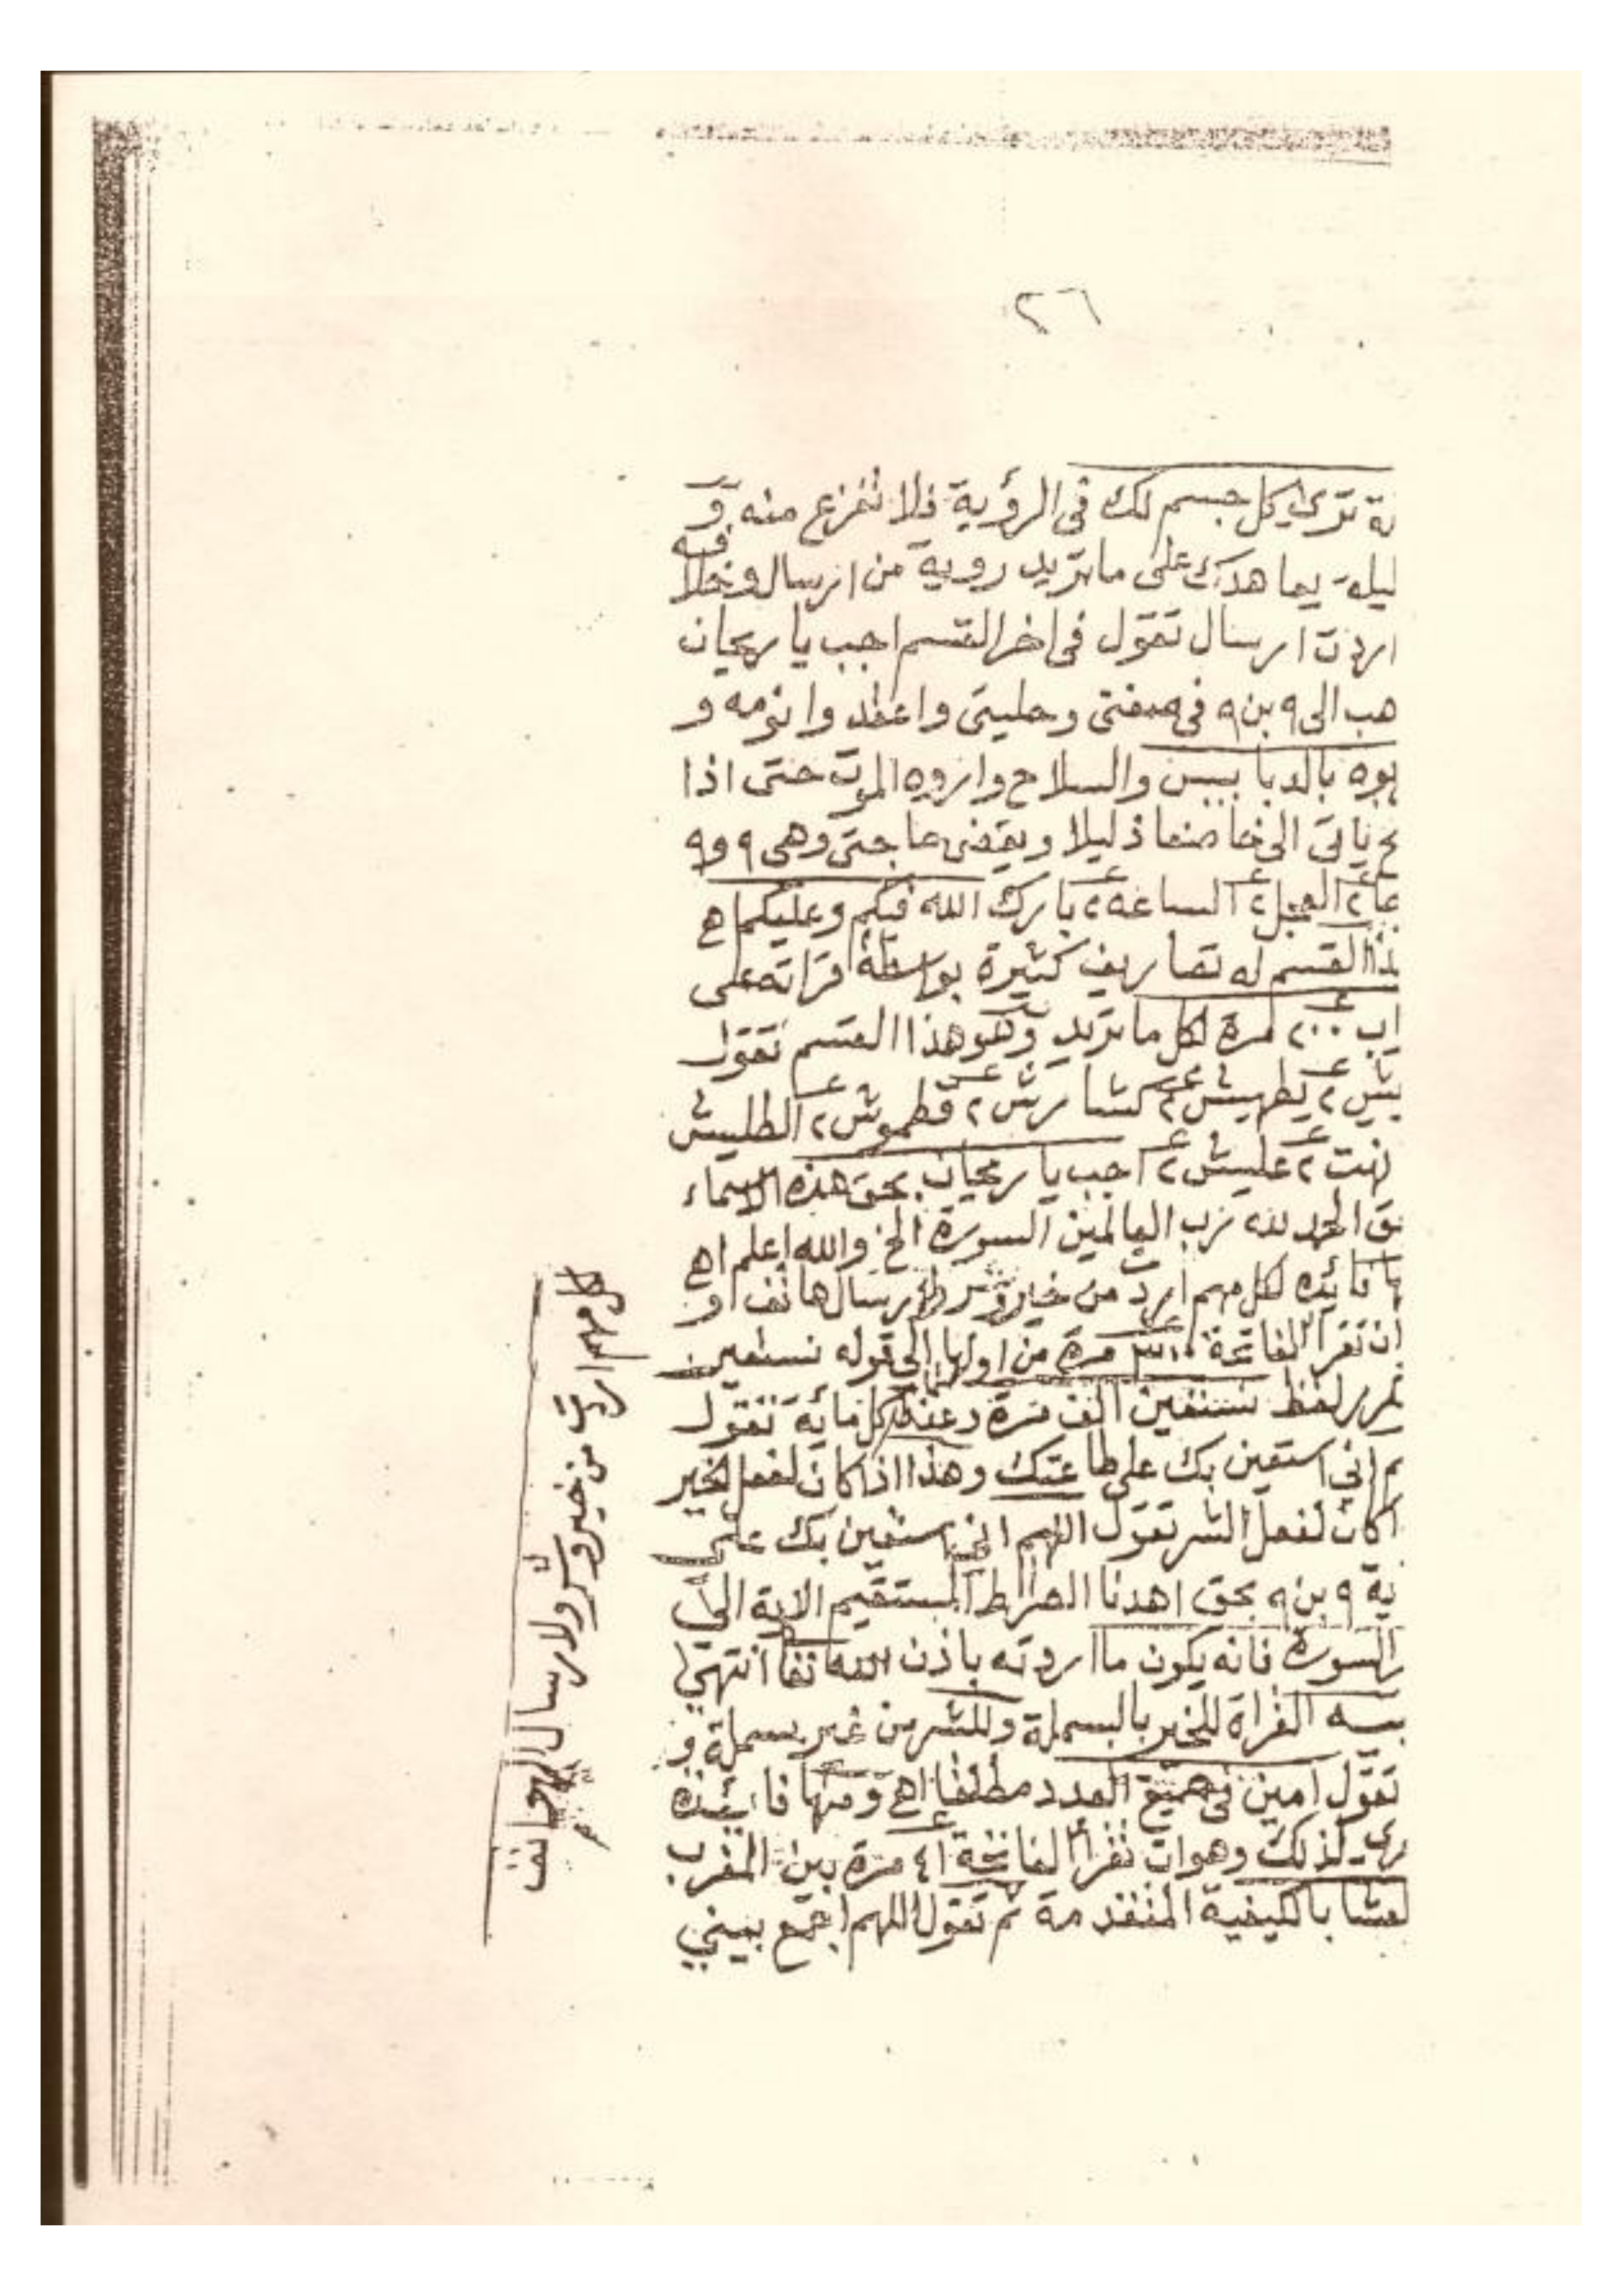 ٢٦
كل جسم لك في الرؤية فلا تفزع منه و
ليلة على ما تريد روية من ارسال و
اردت ارسال تقول في اخر القسم اجب يا ريحان
هب الى ٩ بن ٩ في صفتي وحليتي و
بوه بالدبابيس والسلاح واروه الموت حتى اذا
الى خاضعا ذليلا ويقضى حاجتى وهى ٩ و٩
العجل ٢ الساعه ٢ بارك الله فيكم وعليكم اهـ
القسم له تصاريف كثيرة بواسطة قراته على
مرة لكل ما تريد وهو هذا القسم تقول
يطهيش ٢ كشارش ٢ قطموش ٢ الطليش
عليش ٢ اجب يا ريحان بحق هذه الاسماء
الحمد لله رب العالمين السورة الخ والله اعلم اهـ
فائده لكل مهم اردت من خير وشر ارسال هاتف او
ان تقرا الفاتحة مرة من اولها الى قوله نستعين
لفظ نستعين الف مرة وعند كل مائة تقول
م اني استعين بك على طاعتك وهذا اذا كان لفعل الخير
كان لفعل الشر تقول اللهم اني استعين بك على
ية ٩ بن ٩ بحق اهدنا الصراط المستقيم الاية الى
السورة فانه يكون ما اردته باذن الله تعا انتهى
القراة للخير بالبسملة وللشر من غير بسملة و
تقول امين في جميع العدد مطلقا اهـ ومنها فايده
لذلك وهو ان تقرأ الفاتحة ٤١ مرة بين المغرب
لعشا بالكيفية المتقدمة ثم تقول اللهم اجمع بيني
كل مهم اردت من خير وشر ولارسال الهواتف